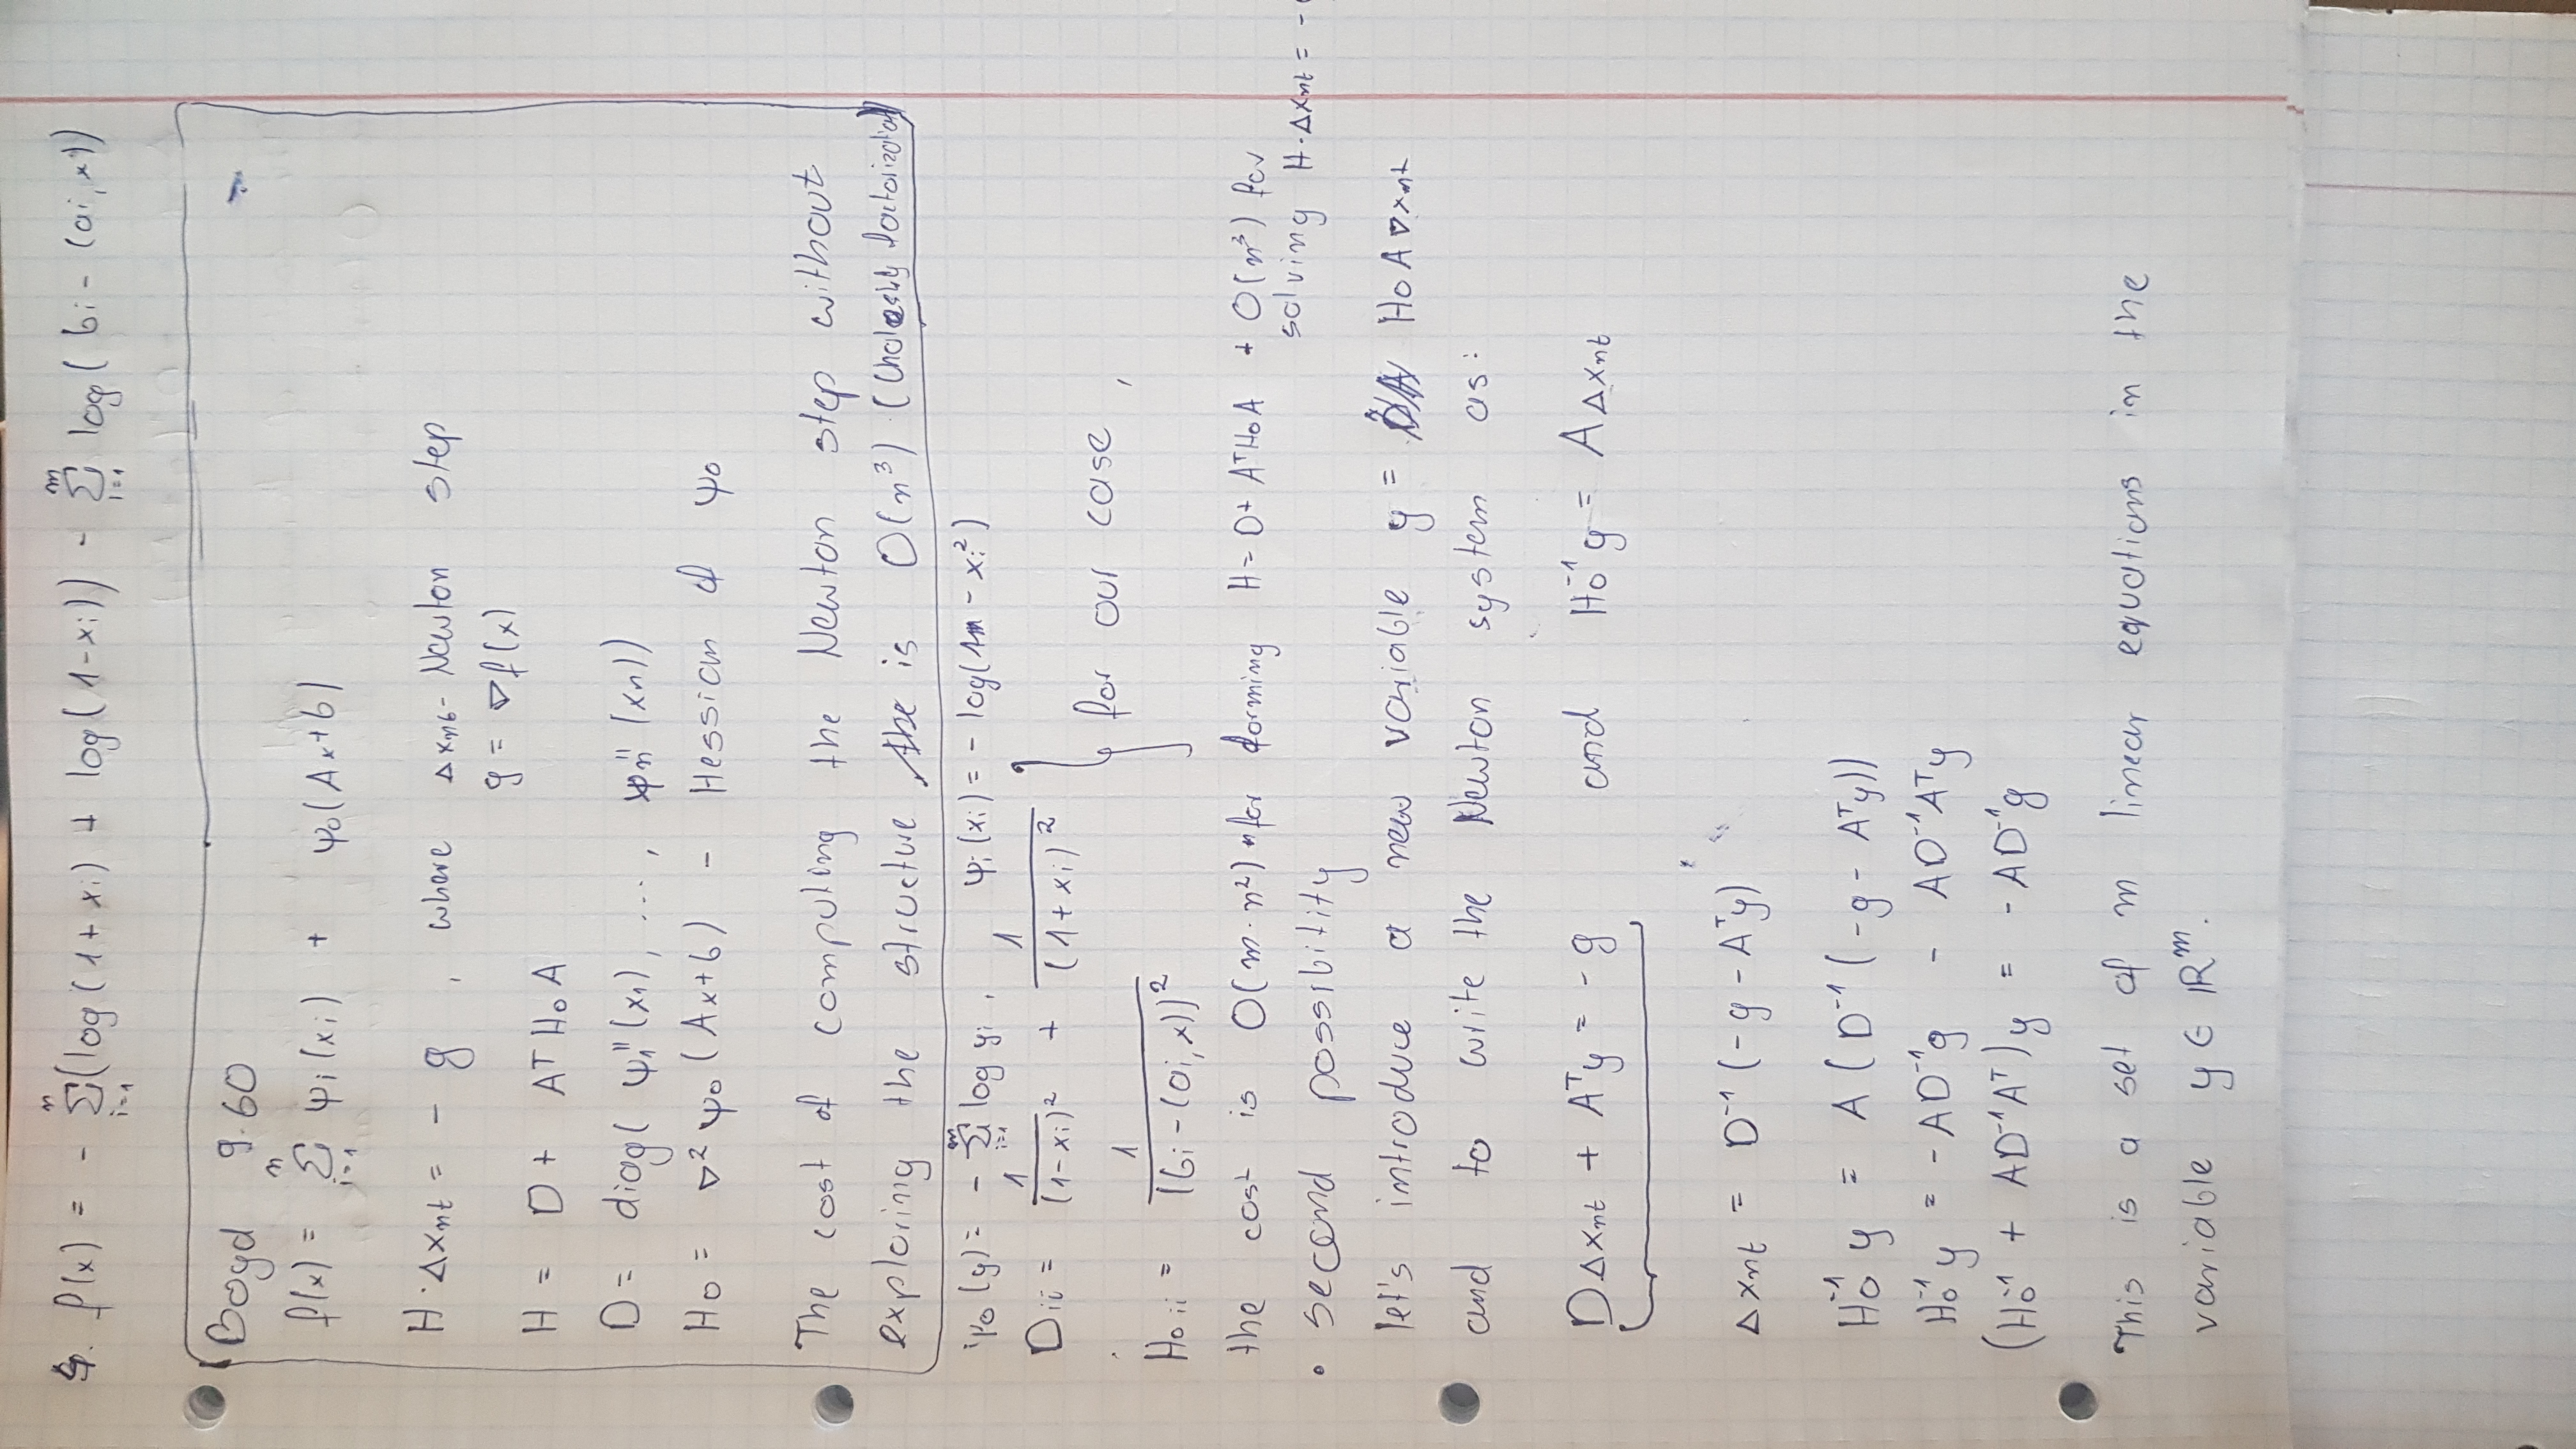 4. f(x) = - Σ_{i=1}^{n} (log(1+xi) + log(1-xi)) - Σ_{i=1}^{m} log(bi - (ai, x))
Boyd 9.60
f(x) = Σ_{i=1}^{n} ψi(xi) + ψ0(Ax+b)
H·Δxnt = - g , where Δxnt - Newton step
g = ∇f(x)
H = D + AᵀH0A
D = diag( ψ1''(x1), ..., ψn''(xn))
H0 = ∇²ψ0(Ax+b) - Hessian of ψ0
The cost of computing the Newton step without
exploring the structure is O(n³) (Cholesky factorization)
ψ0(y) = - Σ_{i=1}^{m} log yi , ψi(xi) = - log(1 - xi²)
Dii = 1/(1-xi)² + 1/(1+xi)²
for our case ,
H0ii = 1/(bi-(ai,x))²
the cost is O(m·n²) for forming H = D + AᵀH0A + O(n³) for
solving H·Δxnt = -
• second possibility
let's introduce a new variable y = H0A∇xnt
and to write the Newton system as:
DΔxnt + Aᵀy = -g and H0⁻¹y = AΔxnt
Δxnt = D⁻¹(-g - Aᵀy)
H0⁻¹y = A(D⁻¹(-g - Aᵀy))
H0⁻¹y = -AD⁻¹g - AD⁻¹Aᵀy
(H0⁻¹ + AD⁻¹Aᵀ)y = -AD⁻¹g
This is a set of m linear equations in the
variable y ∈ ℝᵐ.